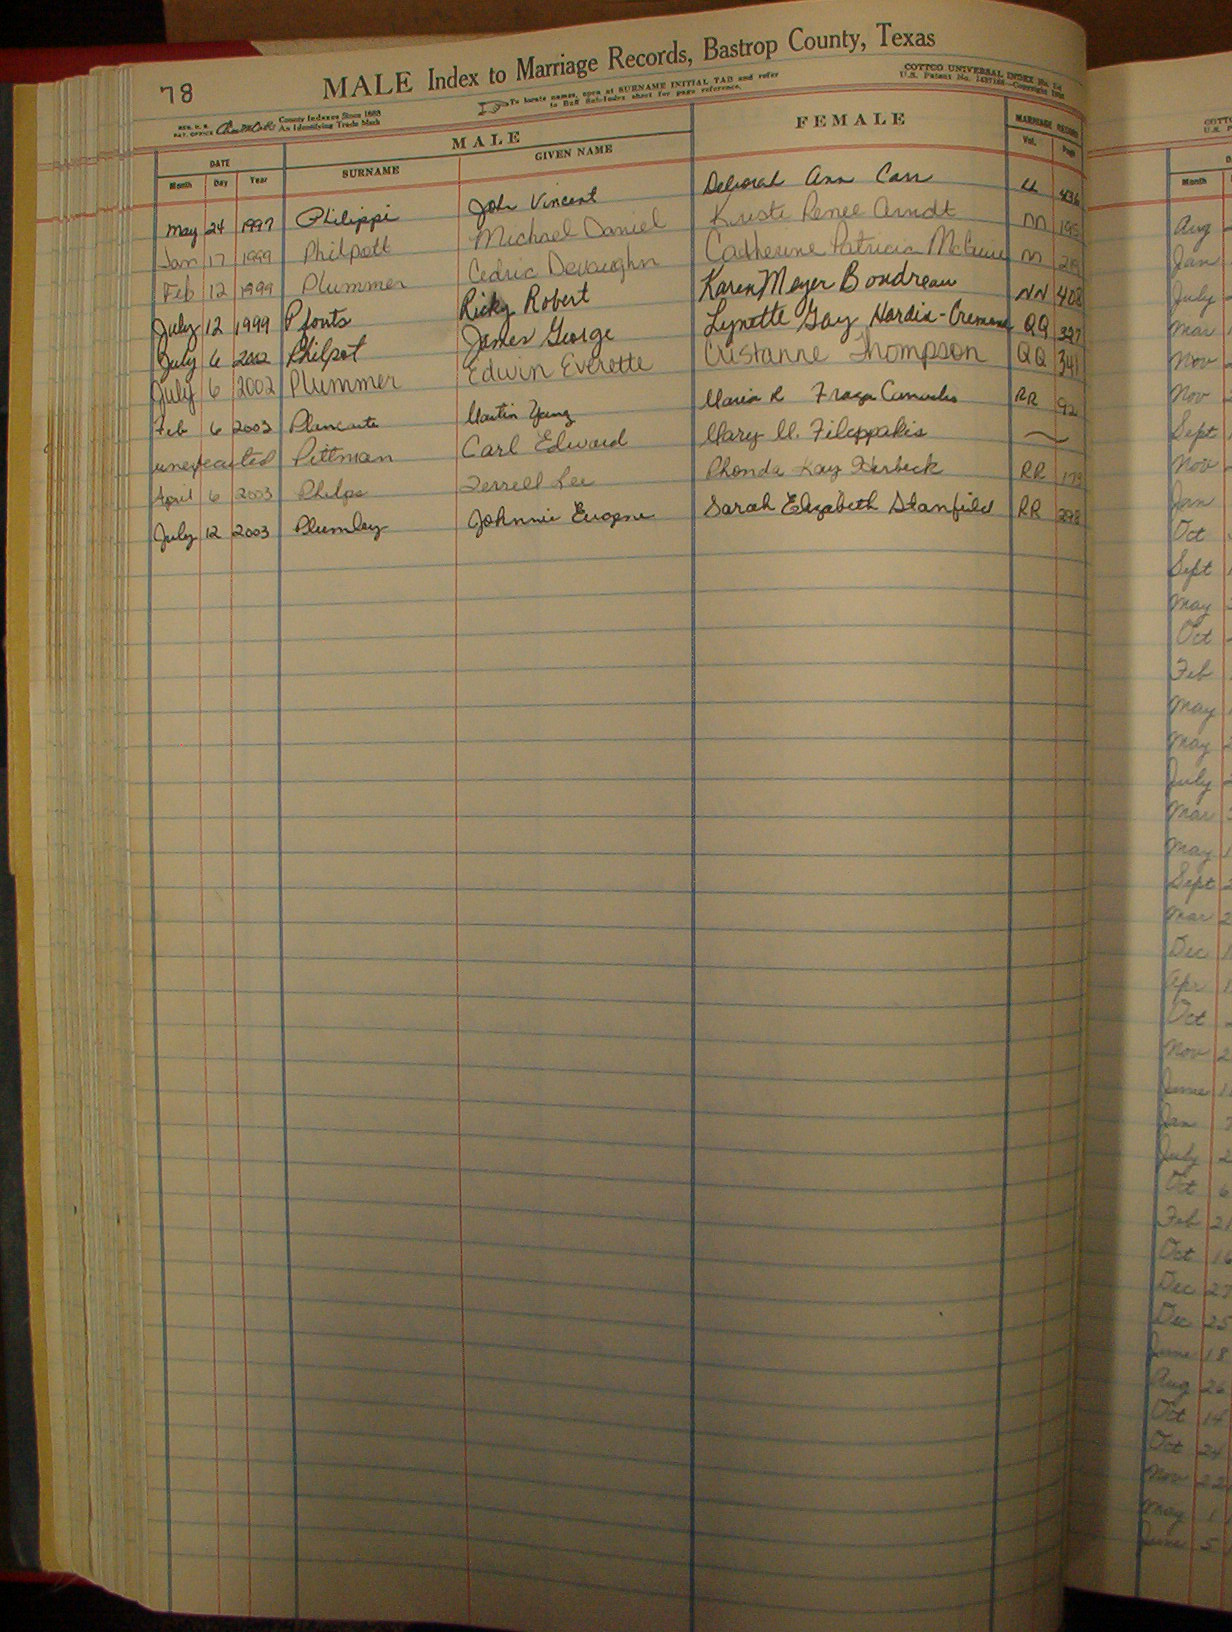 78
MALE Index to Marriage Records, Bastrop County, Texas
REG. U. S. PAT. OFFICE County Indexes Since 1888 An Identifying Trade Mark
To locate names, open at SURNAME INITIAL TAB and refer to Buff Sub-Index sheet for page reference.
COTTCO UNIVERSAL INDEX
U.S. Patent No. Copyright
DATE MALE FEMALE MARRIAGE RECORD
Month Day Year SURNAME GIVEN NAME Vol. Page
May 24 1997 Philippi John Vincent Deborah Ann Carr LL 436
Jan 17 1999 Philpott Michael Daniel Kristi Renee Arndt 195
Feb 12 1999 Plummer Cedric Devaughn Catherine Patricia McGuire
July 12 1999 Pfonts Ricky Robert Karen Meyer Boudreau NN 408
July 6 2002 Philpot James George Lynette Gay Hardin- QQ 327
July 6 2002 Plummer Edwin Everette Cristanne Thompson QQ 341
Feb 6 2003 Plancarte Martin Maria R Fraga RR 92
unexecuted Pittman Carl Edward Mary M. Filippakis
April 6 2003 Phelps Terrell Lee Rhonda Kay Herbeck RR 179
July 12 2003 Plumley Johnnie Eugene Sarah Elizabeth Stanfield RR 298
Month
Aug
Jan
July
Mar
Nov
Nov
Sept
Nov
Jan
Oct
Sept
May
Oct
Feb
May
May
July
Mar
May
Sept
Mar
Dec
Apr
Oct
Nov
June
Jan
July
Oct 6
Feb
Oct 16
Dec
Dec 25
June 18
Aug 26
Oct 14
Oct 24
Nov 22
May 1
June 5